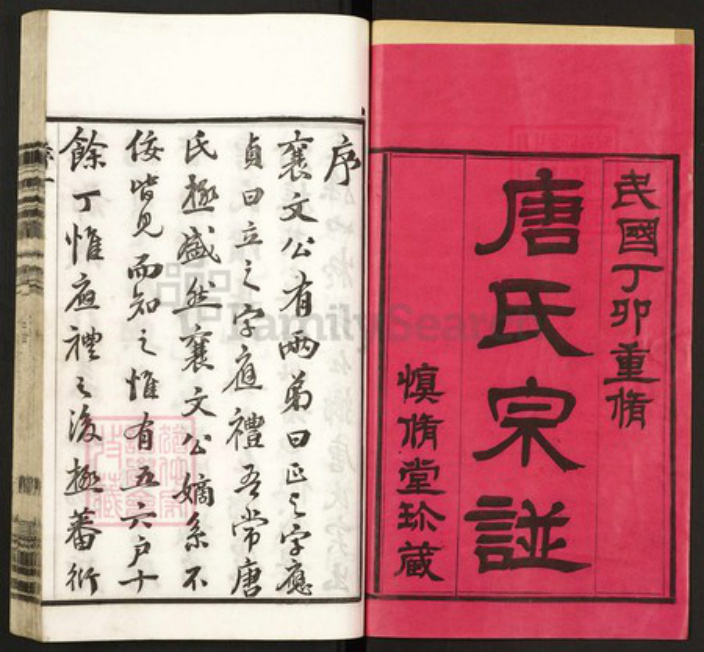 民國丁卯重脩
唐氏宗譜
慎脩堂珍藏
序
襄文公有兩弟曰正之字應
貞曰立之字應禮吾常唐
氏極盛然襄文公嫡系不
佞皆見而知之惟有五六戶十
餘丁惟應禮之後極蕃衍
FamilySearch